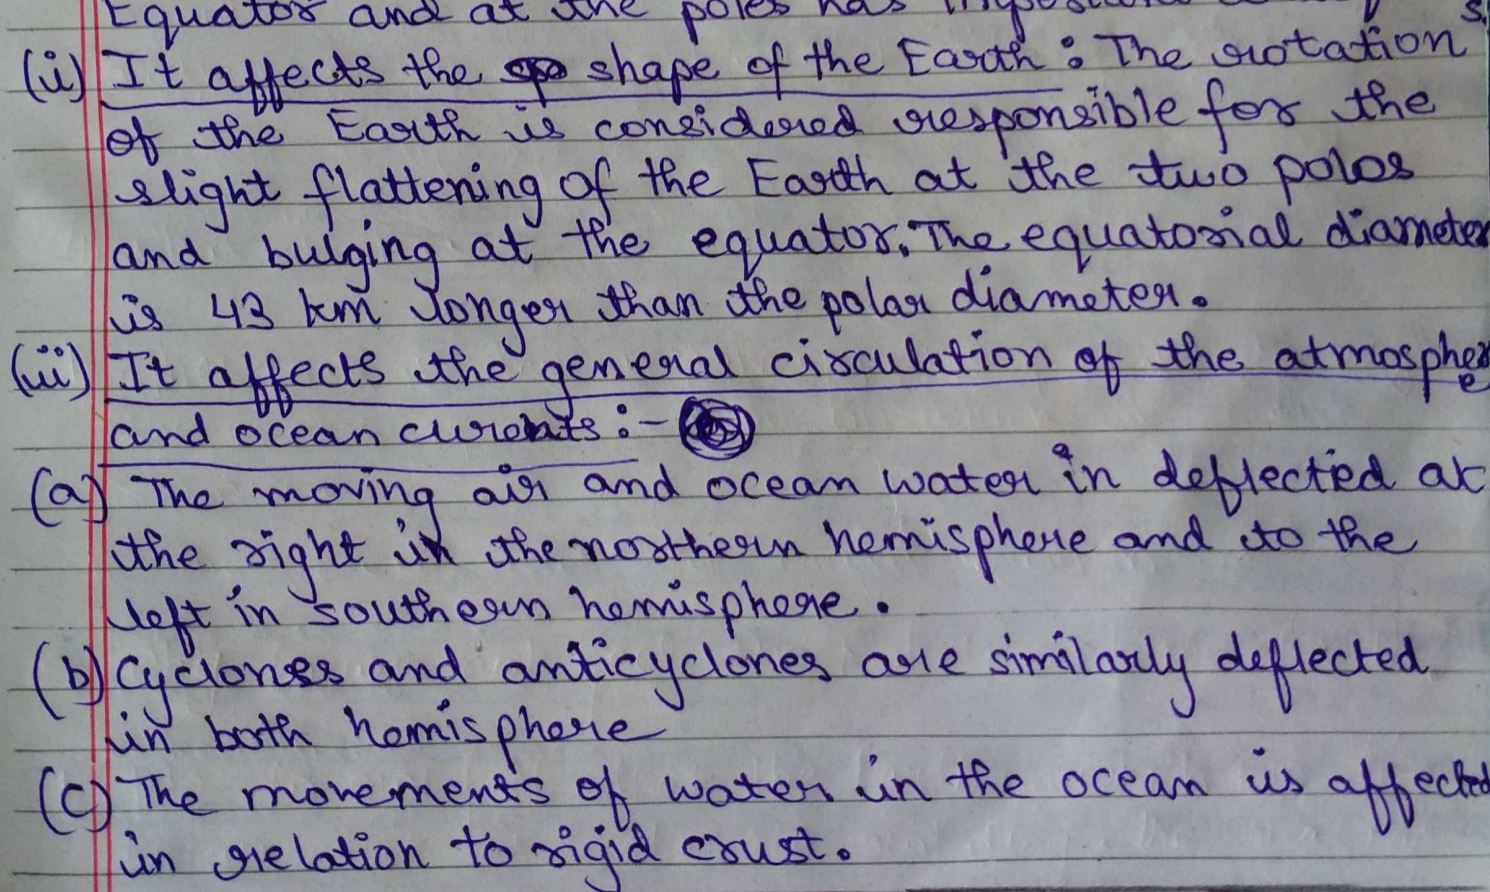 Equator and at the poles has
(ii) It affects the shape of the Earth : The rotation
of the Earth is considered responsible for the
slight flattening of the Earth at the two poles
and bulging at the equator. The equatorial diameter
is 43 km longer than the polar diameter.
(iii) It affects the general circulation of the atmosphere
and ocean curents :-
(a) The moving air and ocean water in deflected at
the right in the northern hemisphere and to the
left in southern hemisphere.
(b) Cyclones and anticyclones are similarly deflected
in both hemisphere
(c) The movements of water in the ocean is affected
in relation to rigid crust.